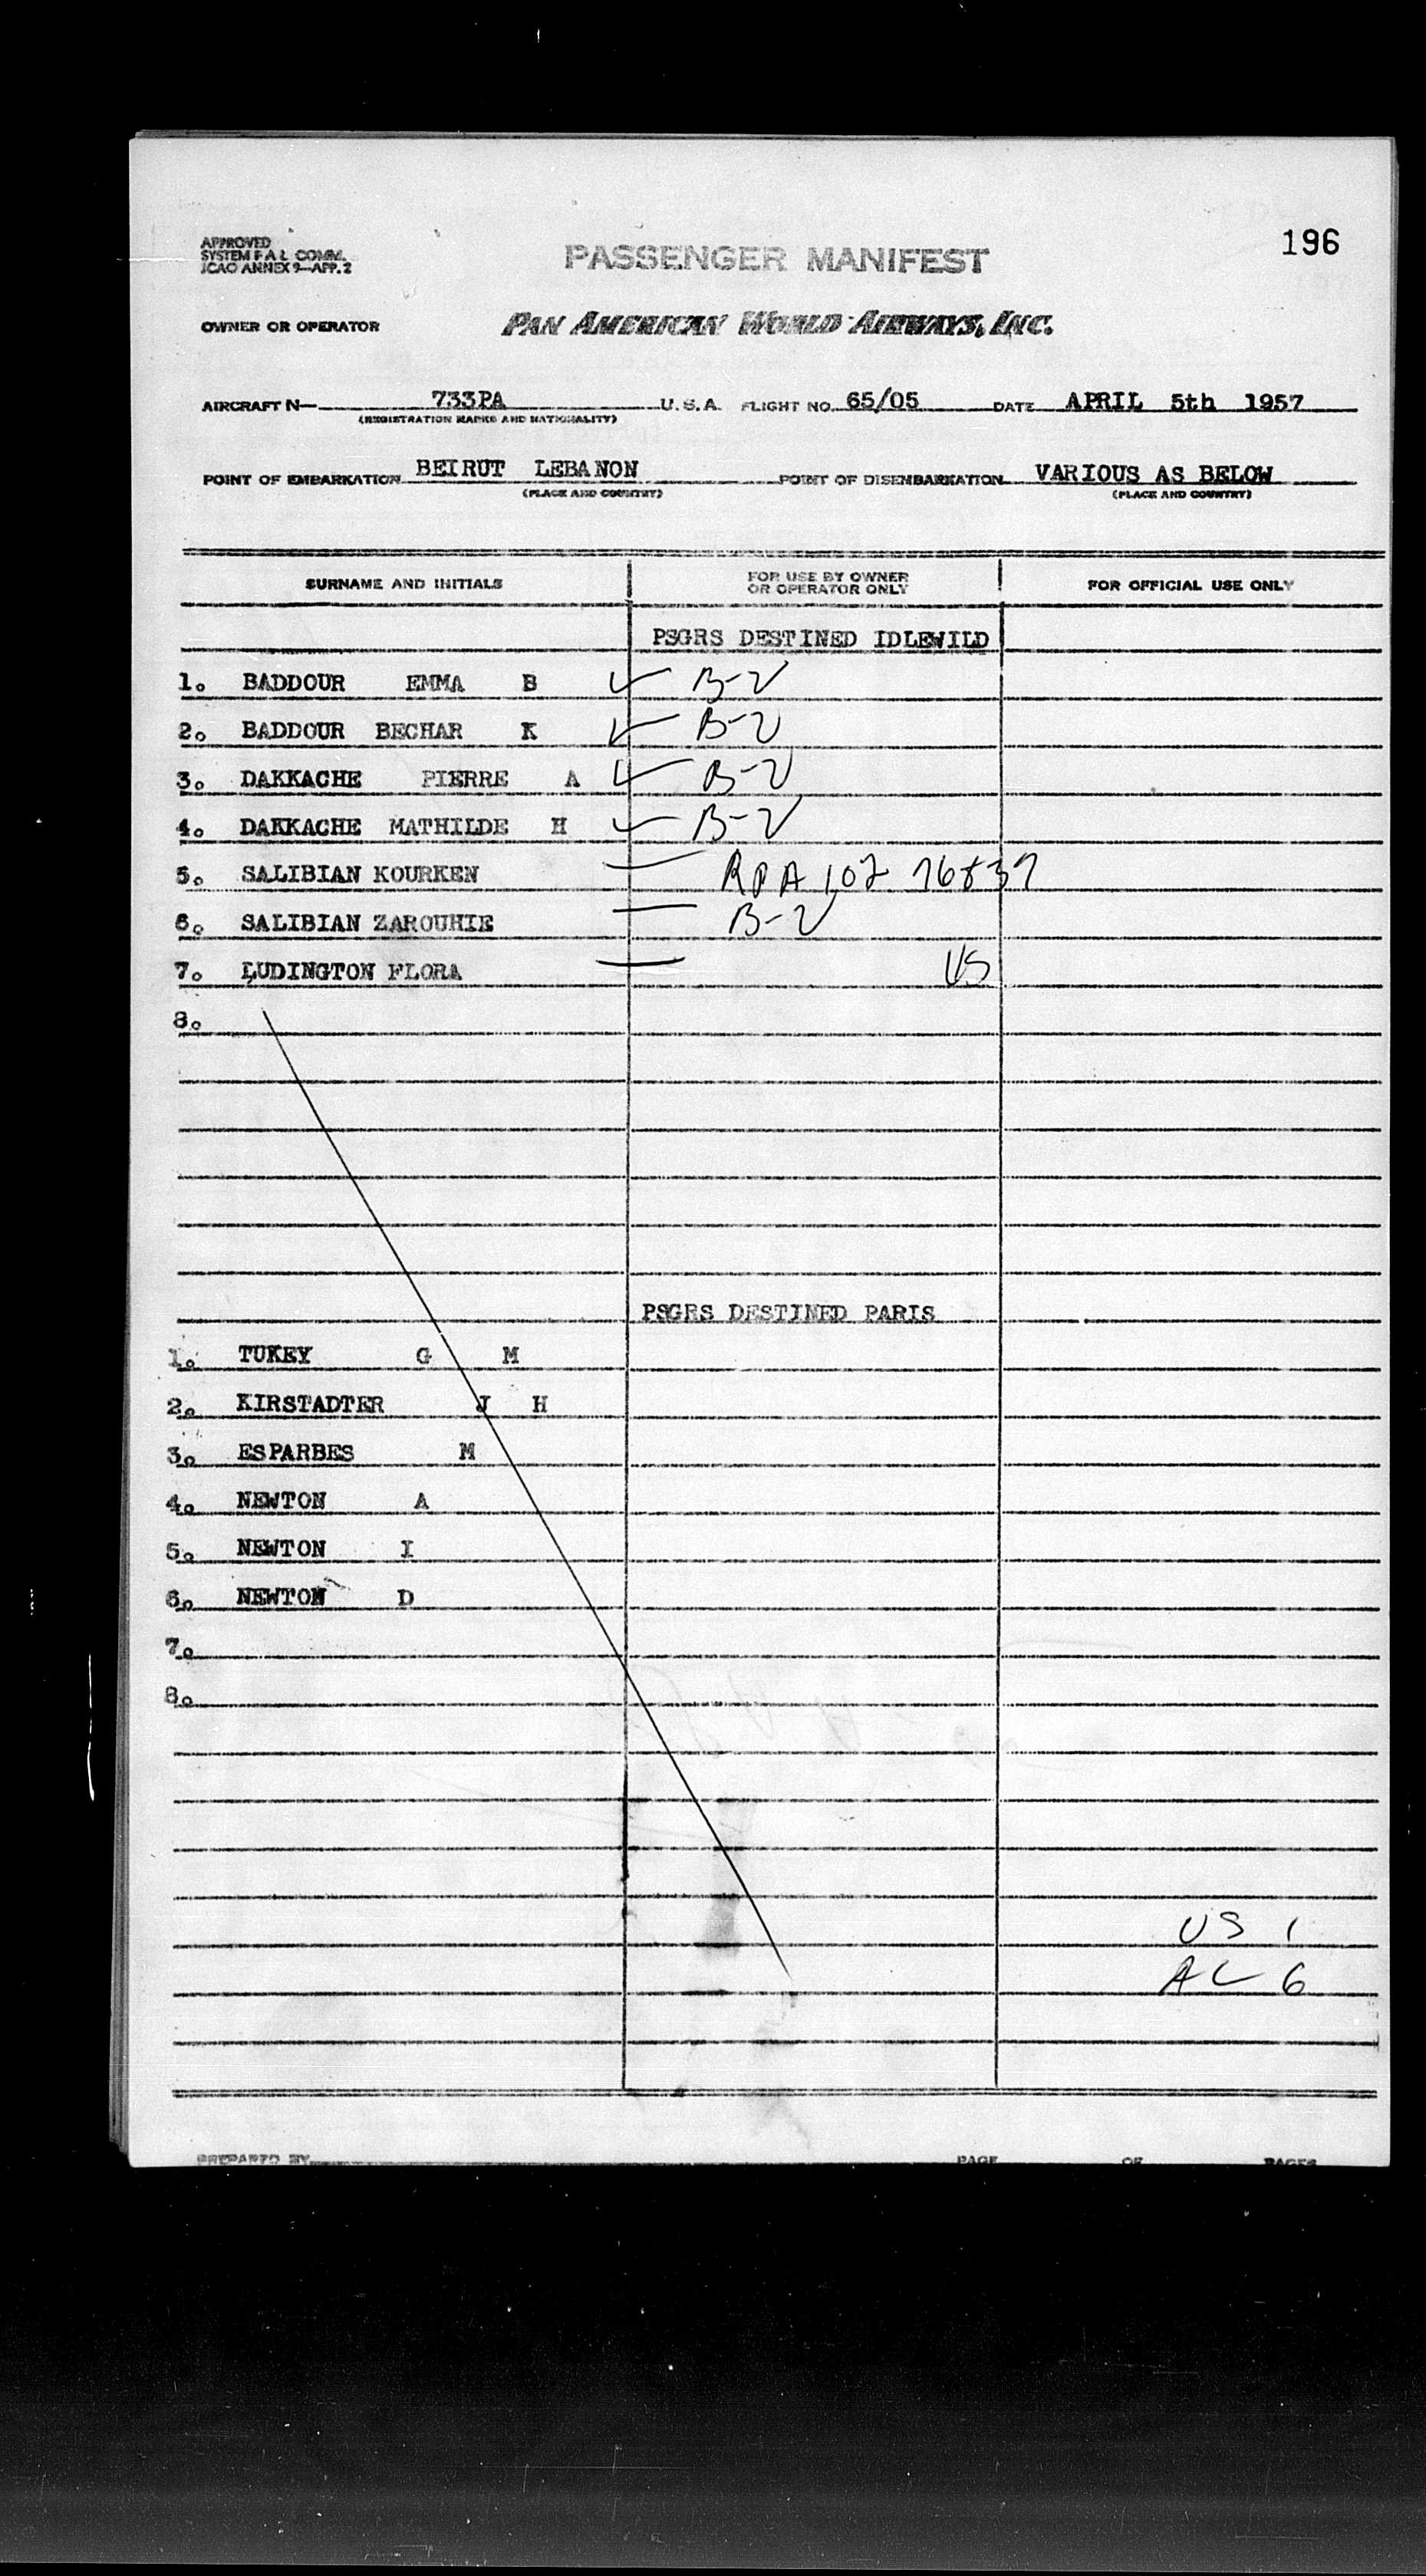 196
APPROVED
SYSTEM F A L COMM.
ICAO ANNEX 9—APP. 2
PASSENGER MANIFEST
OWNER OR OPERATOR PAN AMERICAN WORLD AIRWAYS, INC.
AIRCRAFT N— 733PA U. S. A. FLIGHT NO. 65/05 DATE APRIL 5th 1957
(REGISTRATION MARKS AND NATIONALITY)
POINT OF EMBARKATION BEIRUT LEBANON POINT OF DISEMBARKATION VARIOUS AS BELOW
(PLACE AND COUNTRY) (PLACE AND COUNTRY)
SURNAME AND INITIALS FOR USE BY OWNER OR OPERATOR ONLY FOR OFFICIAL USE ONLY
PSGRS DESTINED IDLEWILD
1. BADDOUR EMMA B ✓ B-2
2. BADDOUR BECHAR K ✓ B-2
3. DAKKACHE PIERRE A ✓ B-2
4. DAKKACHE MATHILDE H ✓ B-2
5. SALIBIAN KOURKEN — 
6. SALIBIAN ZAROUHIE — B-2
7. LUDINGTON FLORA — US
8.
PSGRS DESTINED PARIS
1. TUKEY G M
2. KIRSTADTER J H
3. ESPARBES M
4. NEWTON A
5. NEWTON I
6. NEWTON D
7.
8.
US 1
AL 6
PREPARED BY PAGE OF PAGES